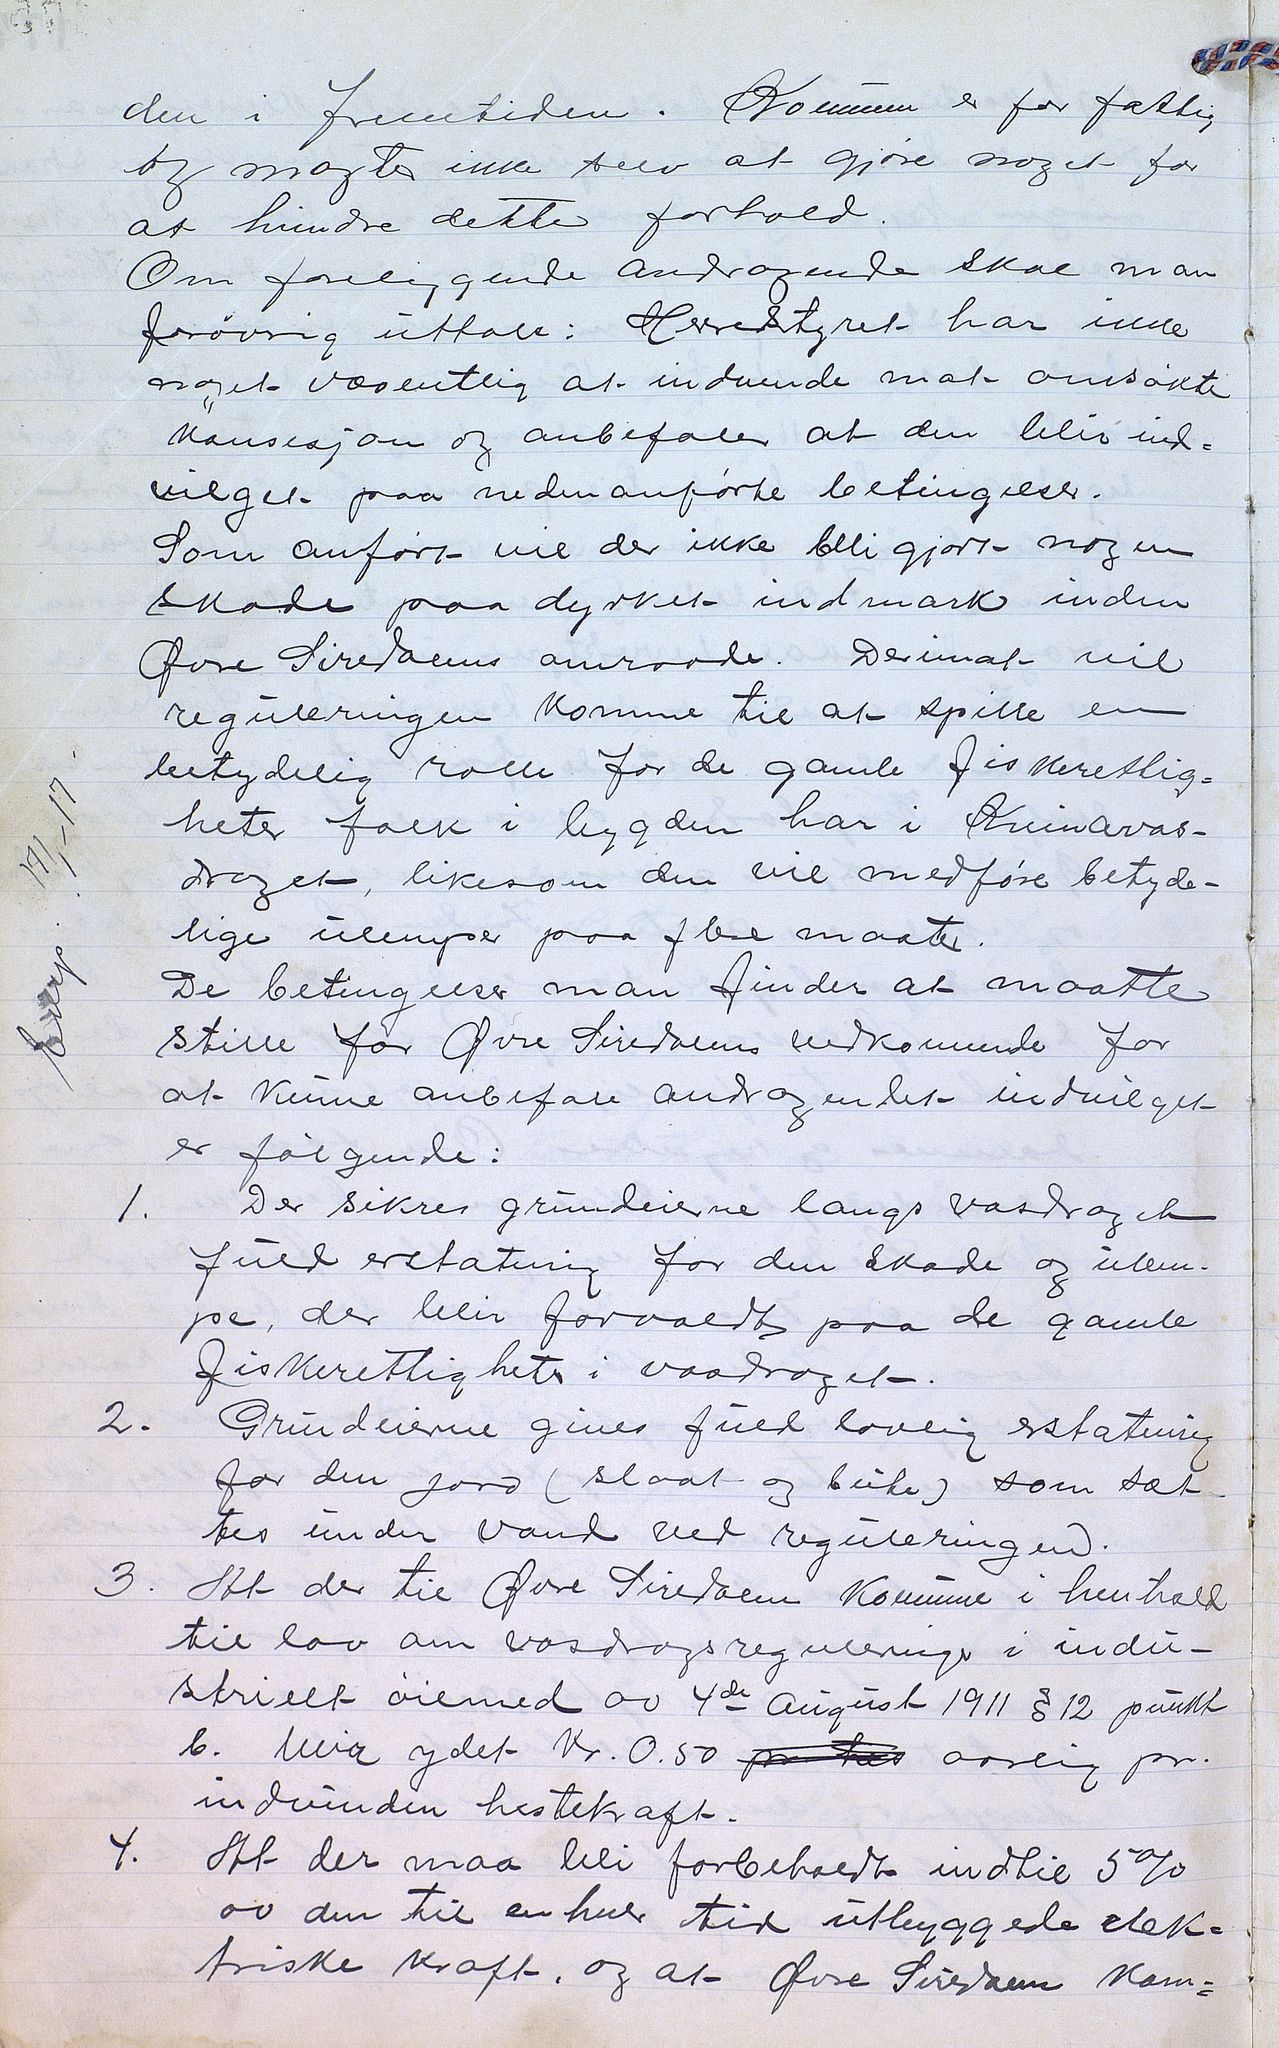 den i fremtiden. Kommunen er for fattig
og magter ikke selv at gjöre noget for
at hindre dette forhold.
Om foreliggende andragende skal man
forövrig uttale: Herredstyret har ikke
noget væsentlig at indvende mot omsökte
konsesjon og anbefaler at den blir ind=
vilget paa nedenanförte betingelser.
Som anfört vil der ikke bli gjort nogen
skade paa dyrket indmark inden
Øvre Siredalens omraade. Derimot vil
reguleringen komme til at spille en
betydelig rolle for de gamle fiskerettig=
heter folk i bygden har i Kvinavas-
draget, likesom den vil medföre betyde-
lige ulemper paa flere maater.
De betingelser man finder at maatte
stille for Øvre Siredalens vedkommende for
at kunne anbefale andragendet indvilget
er fölgende:
1. Der sikres grundeierne langs vasdraget
fuld erstatning for den skade og ulem-
pe, der blir forvoldt paa de gamle
fiskerettigheter i vasdraget.
2. Grundeierne gives fuld lovlig erstatning
for den jord (slaat og beite) som sæt-
tes under vand ved reguleringen.
3. At der til Øvre Siredalen kommune i henhold
til lov om vasdragsregulering i indu-
strielt öiemed av 4de August 1911 § 12 punkt
b. blir ydet Kr. 0.50 pr hes aarlig pr.
indvunden hestekraft.
4. At der maa bli forbeholdt indtil 5%
av den til enhver tid utbyggede elek=
triske kraft, og at Øvre Siredalen kom=
17/1-17.